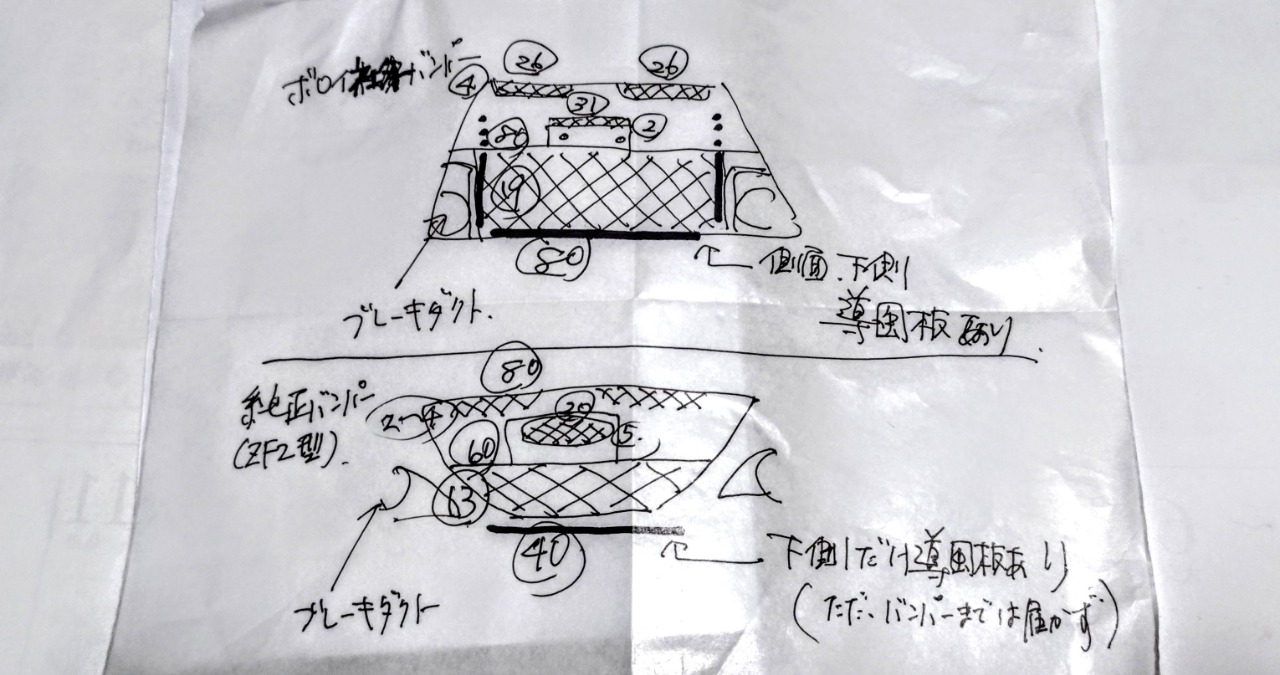 ボロイ バンパー
26
26
4
31
2
80
19
80
側面、下側
導風板あり
ブレーキダクト.
80
純正バンパー
(ZF2型).
2〜4
20
5.
60
13
40
下側だけ導風板あり
(ただ、バンパーまでは届かず)
ブレーキダクト